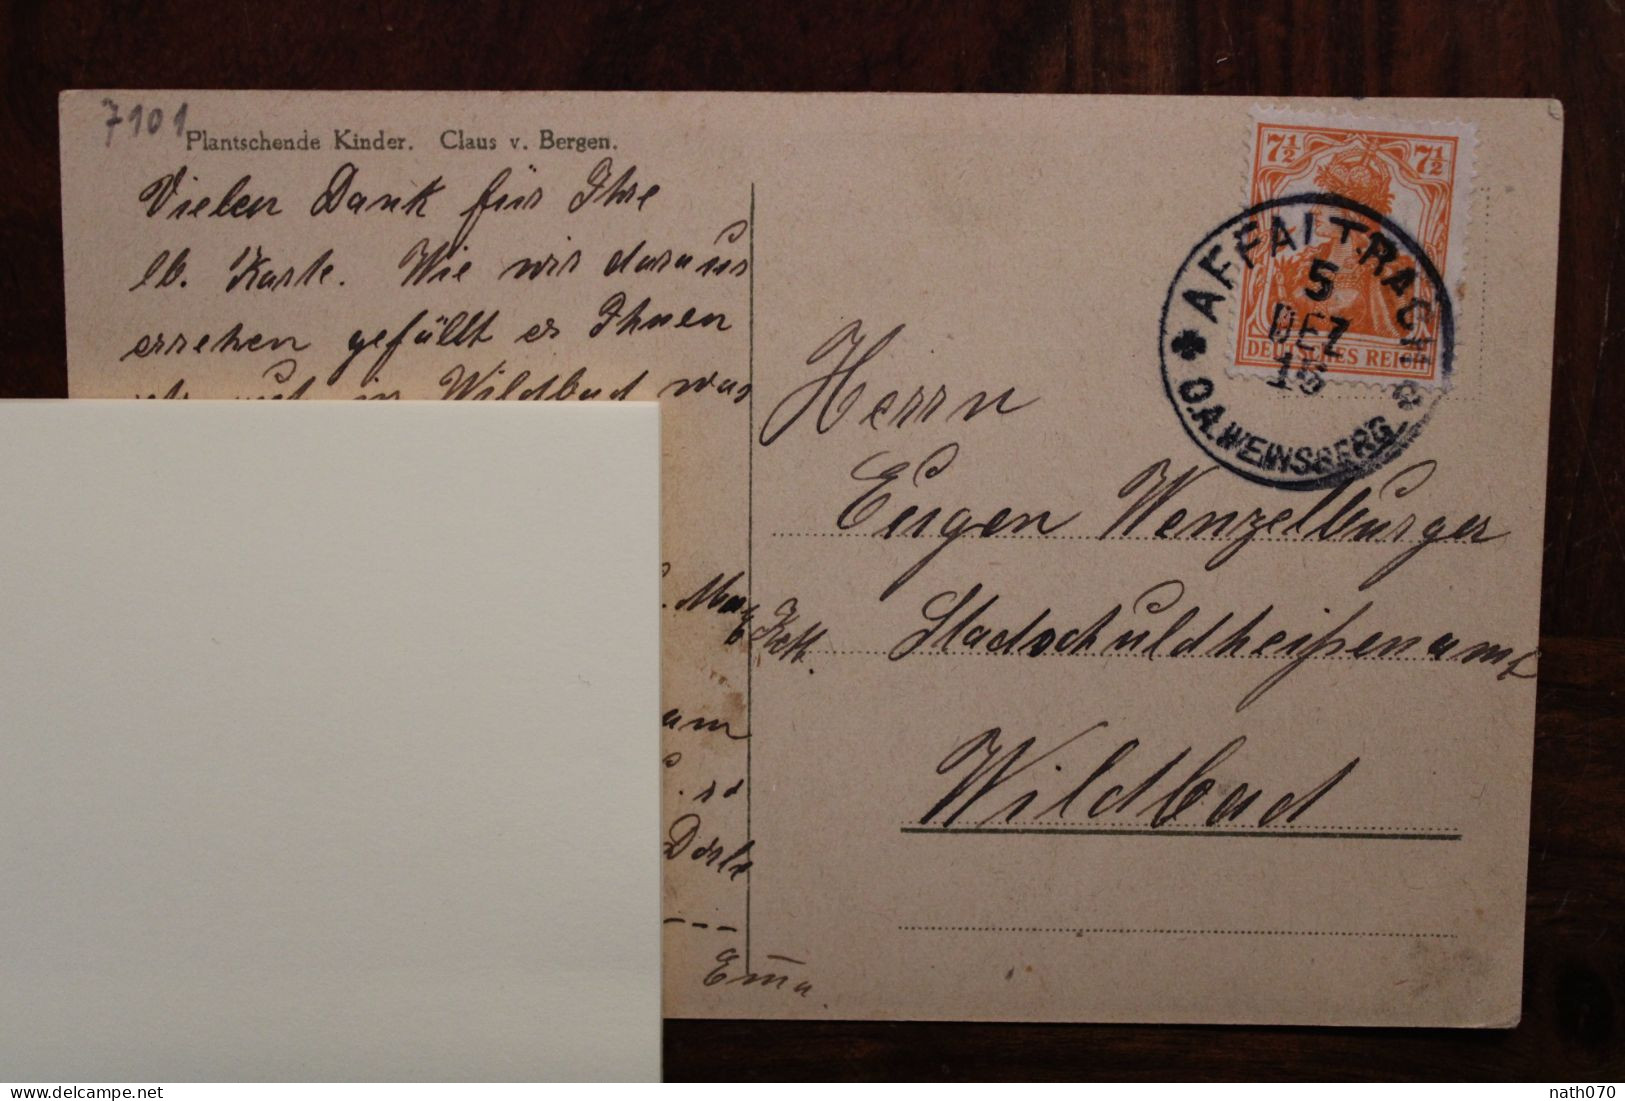 7101
Plantschende Kinder. Claus v. Bergen.
Vielen Dank für Ihre
lb. Karte. Wie wir daraus
ersehen gefällt es Ihnen
in Wildbad was
am
Dorle
Emma.
7½ 7½
DEUTSCHES REICH
AFFALTRACH
5
DEZ
16
O.A. WEINSBERG
Herrn
Eugen Wenzelburger
Stadschuldheißenamt
Wildbad
nath070